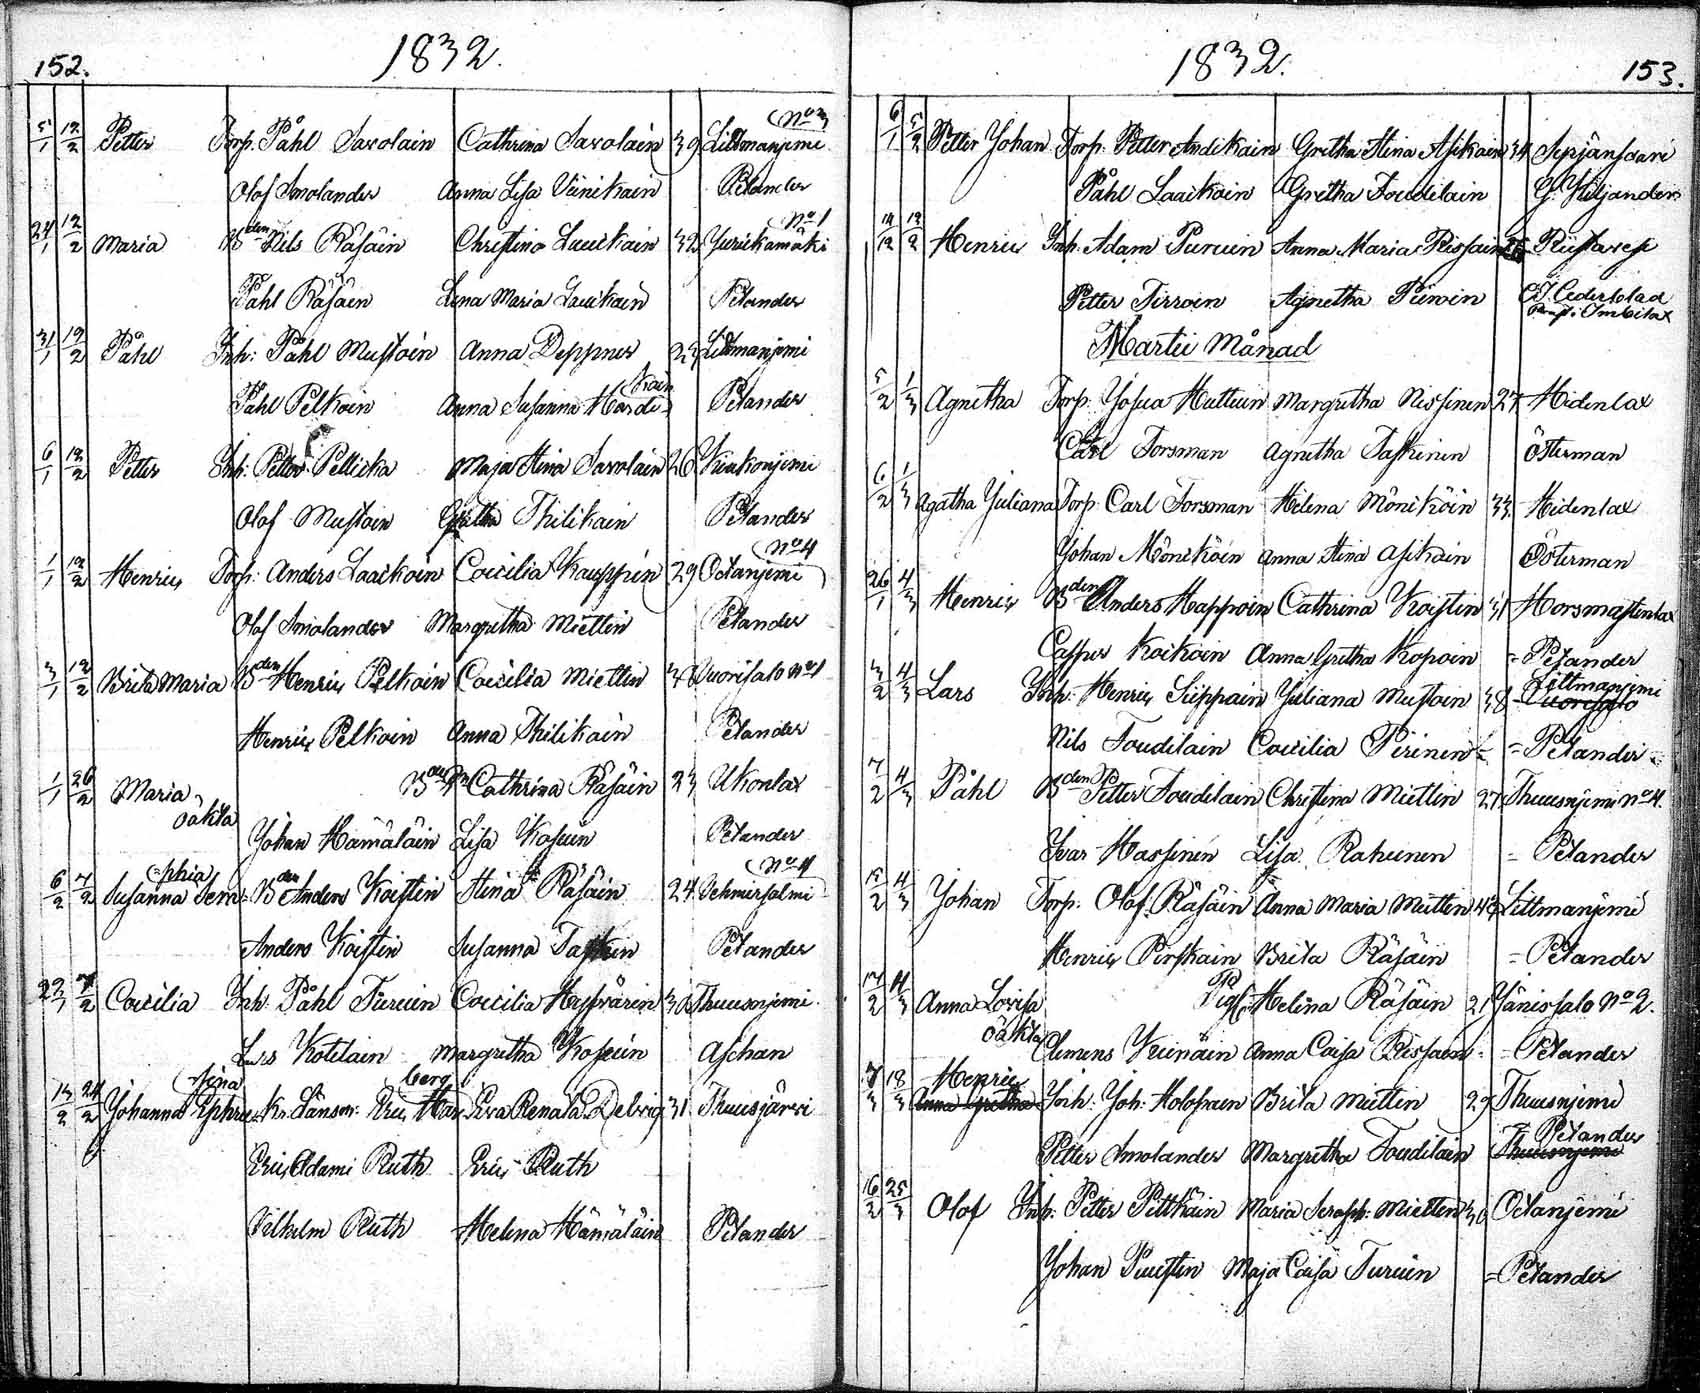 152.
1832.
5/1 12/2 Petter Torp. Påhl Savolain Cathrina Savolain 39 Littmanjemi No 3
Olof Smolander Anna Lisa Vänikain Petander
24/1 12/2 Maria Bden Nils Räsäin Christina Lauikain 32 Jurikamäki No 1
Påhl Räsäin Lena Maria Lauikain Petander
31/1 12/2 Påhl Inh: Påhl Mustoin Anna Deppner 23 Littmanjemi
Påhl Pelkoin Anna Susanna Hardikain Petander
6/1 12/2 Petter Inh: Petter Pellicka Maja Stina Savolain 26 Kiukonjemi
Olof Mustoin Gretha Thilikain Petander
1/1 12/2 Henric Torp: Anders Laackoin Coecilia Kauppin 29 Oetanjemi No 4
Olof Smolander Margretha Miettin Petander
3/1 12/2 Brita Maria Bden Henric Pelkoin Coecilia Miettin 38 Vuorisalo No 1
Henric Pelkoin Anna Thilikain Petander
1/1 26/2 Maria oäkta Cathrina Räsäin 23 Ukonlax
Johan Hämäläin Lisa Kosuin Petander
6/2 7/2 Susanna Seraphia Bden Anders Koistin Stina Räsäin 24 Vehmersalmi No 4
Anders Koistin Susanna Petander
22/1 7/2 Coecilia Inh. Påhl Turuin Coecilia Hyppärin 30 Thuusnjemi
Lars Kotilain Margretha Kosuin Aschan
13/2 24/2 Johanna Ephrosina Kr. Länsm: Eric Harberg Eva Renata Delvig 31 Thuusjärvi
Eric Adami Ruth Eric Ruth
Vilhelm Ruth Helena Hämäläin Petander
1832.
153.
6/1 5/2 Petter Johan Torp: Petter Andikain Gretha Stina Asikain 34
Påhl Laackoin Gretha Toudilain G. Kiljander
14/12 12/2 Henric Inh. Adam Puruin Anna Maria Rissain Riistavesi
Petter Tirroin Agnetha Puroin C. J. Cederblad
Martii Månad
5/2 1/3 Agnetha Torp: Josua Huttuin Margretha Nissinen 27 Hidenlax
Carl Forsman Agnetha Taskinen Österman
6/2 1/3 Agatha Juliana Torp. Carl Forsman Helena Möniköin 33 Hidenlax
Johan Möniköin Anna Stina Asikain Österman
26/1 4/3 Henric Bden Anders Happoin Cathrina Koistin 31 Horsmastenlax
Casper Koikoin Anna Gretha Kopoin = Petander
3/2 4/3 Lars Inh: Henric Süppain Juliana Mustoin 38 Littmanjemi Vuorisalo
Nils Toudilain Coecilia Pirinen = Petander
7/2 4/3 Påhl Bden Petter Toudilain Christina Miettin 27 Thuusnjemi No 4.
Ivar Hassinen Lisa Rahunen = Petander
15/2 4/3 Johan Torp: Olof Räsäin Anna Maria Miettin 43 Littmanjemi
Henric Pirskain Brita Räsäin = Petander
17/2 11/3 Anna Lovisa oäkta Pig. Helena Räsäin 21 Jänissalo No 2.
Clemens Keinäin Anna Caisa Rissain = Petander
7/3 18/3 Henric Anna Gretha Inh: Joh: Holopain Brita Miettin 29 Thuusnjemi
Petter Smolander Margretha Toudilain = Petander Thuusnjemi
16/2 25/3 Olof Inh: Petter Pittkäin Maria Seraph: Mietten 30 Oetanjemi
Johan Puustin Maja Caisa Turuin = Petander